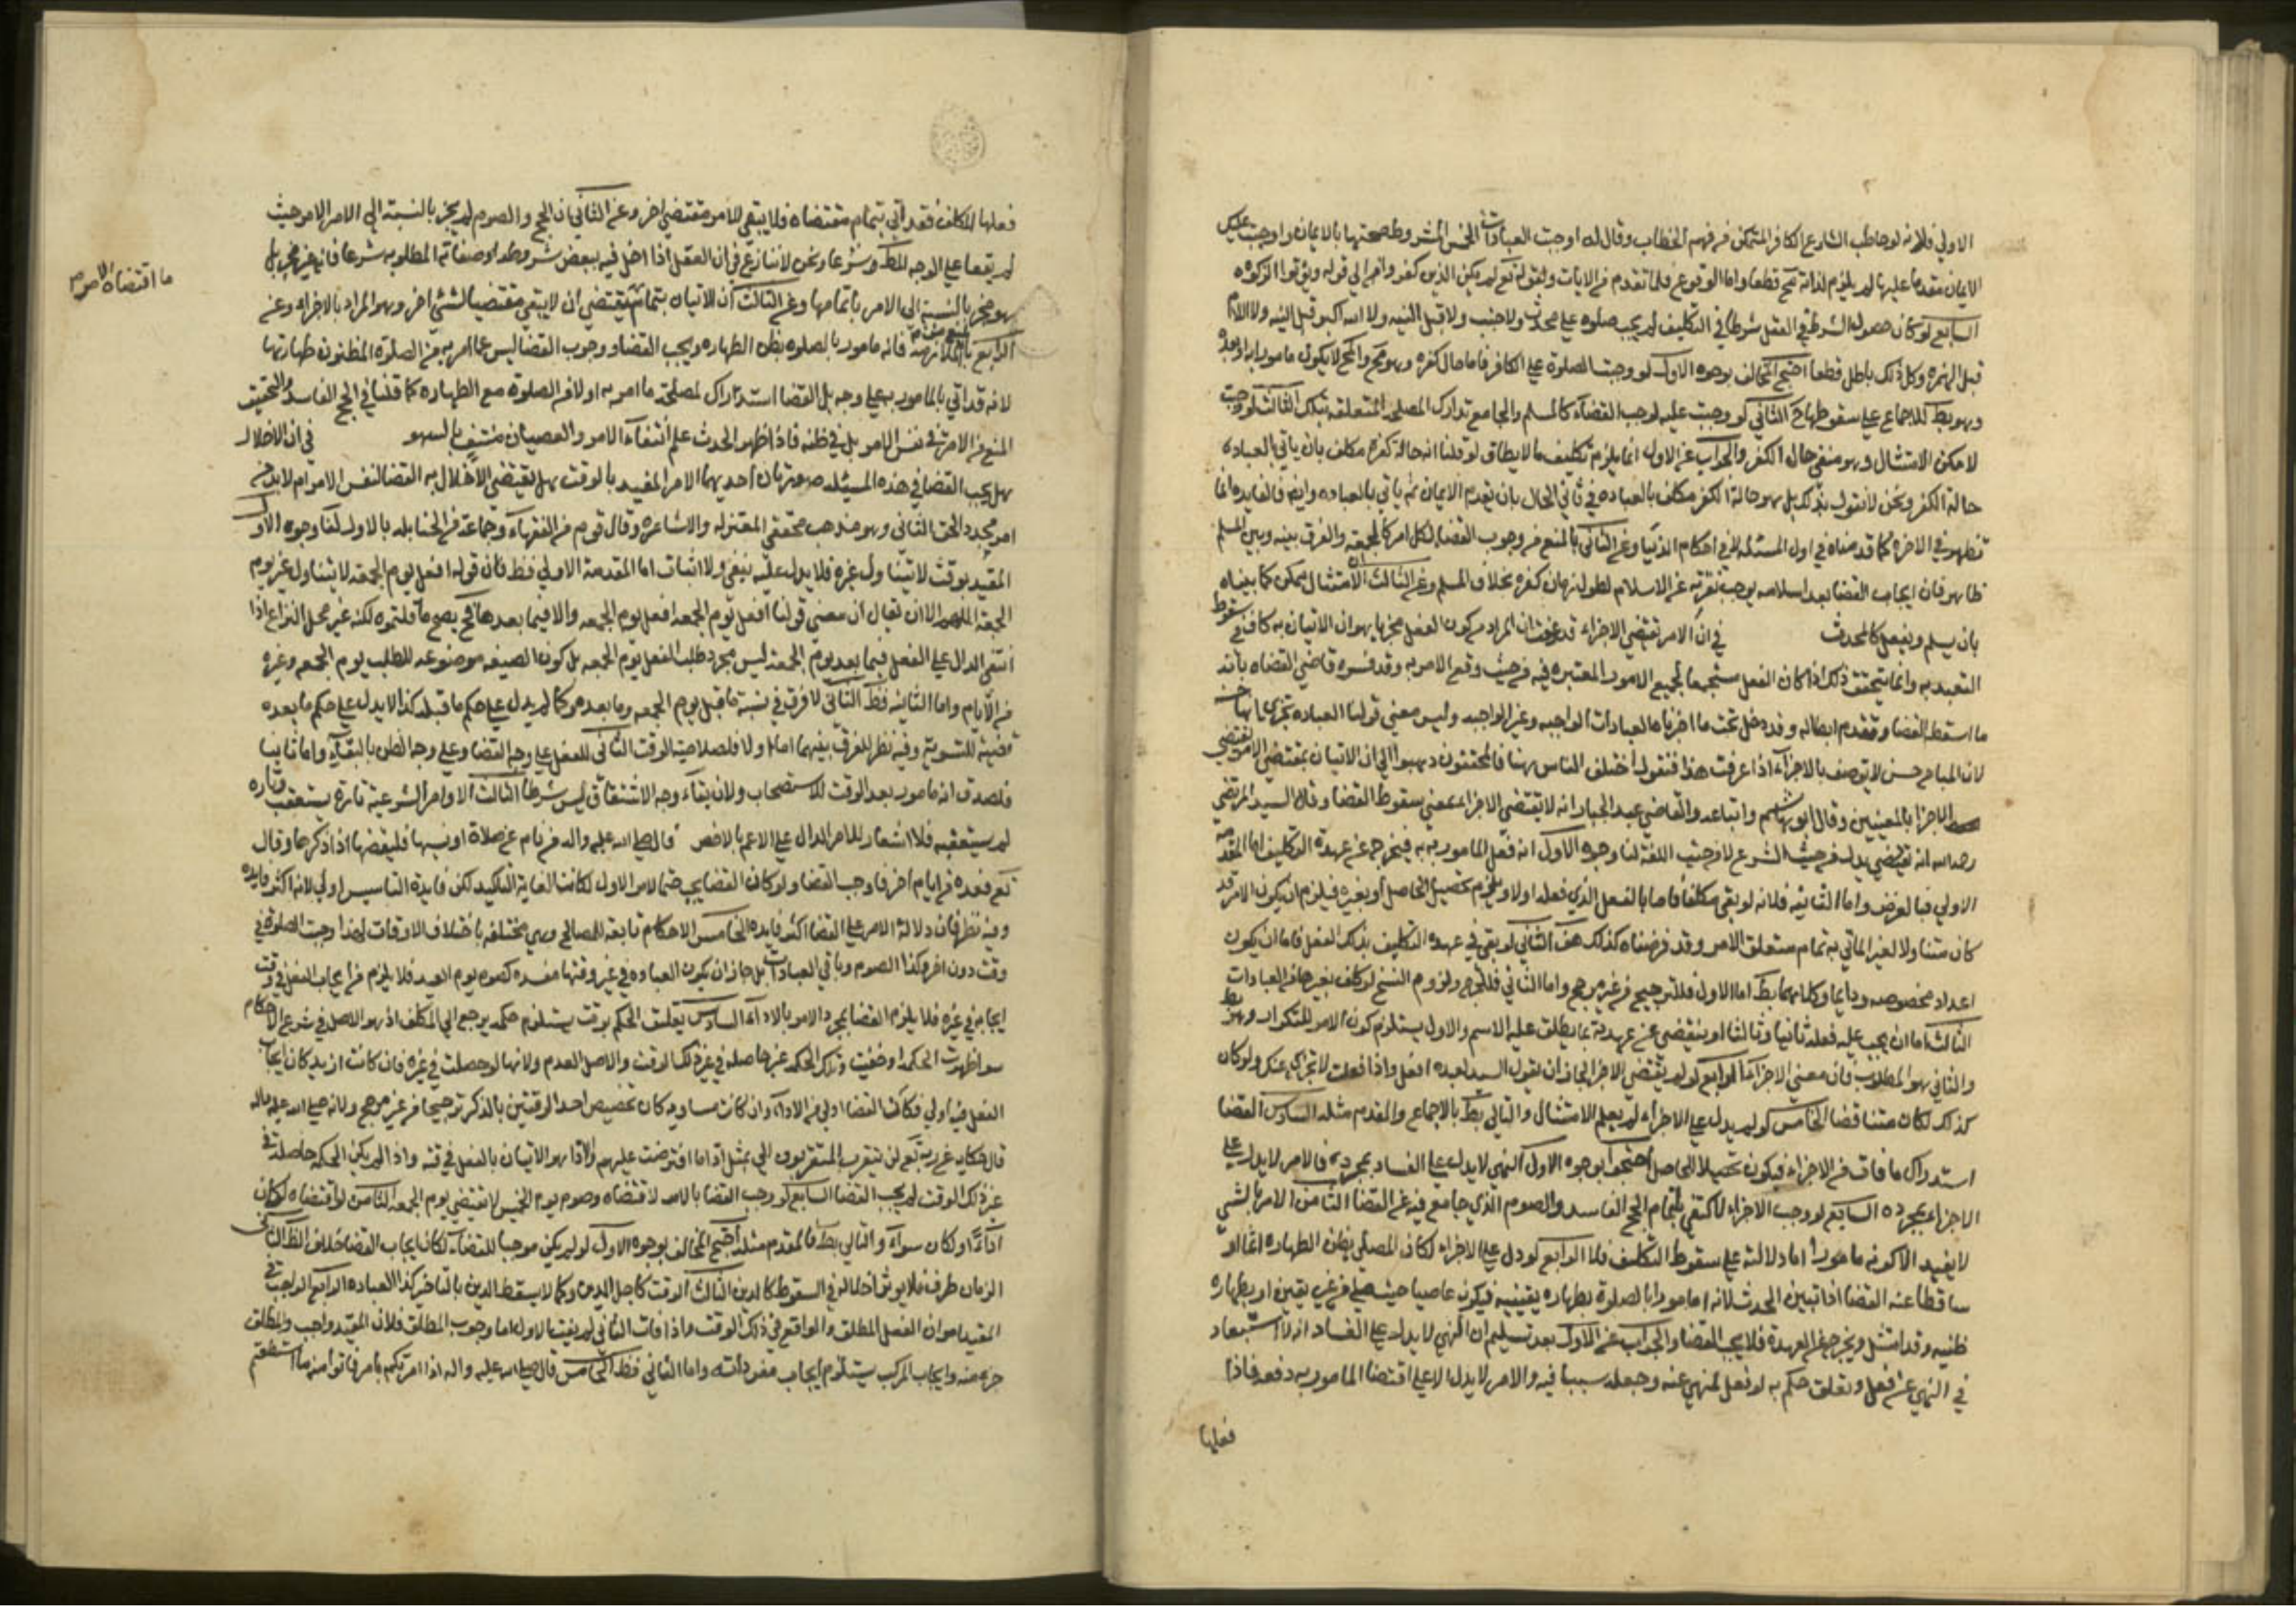 الاولي فلانه لو خاطب الشارع الكافر المتمكن من فهم الخطاب وقال له اوجبت العبادات الخمس المشروط صحتها بالايمان واوجبت عليك
الايمان مقدما عليها لم يلزم لذاته مح قطعا واما الوقوع فلما تقدم من الايات ولقوله تع لم يكن الذين كفروا الي قوله ويؤتوا الزكوة
السابع لو كان حصول الشرط في الفعل شرطا في التكليف لم يجب صلوة علي محدث ولا جنب ولا قبل النيه ولا الله اكبر قبل النيه ولا اللام
قبل الهمزه وكل ذلك باطل قطعا احتج المخالف بوجوه الاول لو وجبت الصلوة علي الكافر فاما حال كفره وهو مح والمح لا يكون مامورا به او بعده
وهو بط للاجماع علي سقوطها ح الثاني لو وجبت عليه لوجب القضآء كالمسلم والجامع تدارك المصلحه المتعلقه بتلك الثالث لو وجبت
لامكن الامتثال وهو منفي حال الكفر والجواب عن الاول انما يلزم تكليف ما لا يطاق لو قلنا انه حالة كفره مكلف بان ياتي بالعباده
حالة الكفر ونحن لا نقول بذلك بل هو حالة الكفر مكلف بالعباده في ثاني الحال بان يقدم الايمان ثم ياتي بالعباده وايضا فالفايده انما
تظهر في الاخره كما قدمناه في اول المسئله لا في احكام الدنيا وعن الثاني بالمنع من وجوب القضا لكل امر كالجمعه والفرق بينه وبين المسلم
ظاهر فان ايجاب القضا بعد اسلامه يوجب نفرته عن الاسلام لطول زمان كفره بخلاف المسلم وعن الثالث ان الامتثال ممكن كما بيناه
بان يسلم ويفعل كالمحدث في ان الامر يقتضي الاجزاء قد عرفت ان المراد من كون الفعل مجزيا هو ان الاتيان به كاف في سقوط
التعبد به وانما يتحقق ذلك اذا كان الفعل مستجمعا لجميع الامور المعتبره فيه من حيث وقع الامر به وقد فسره قاضي القضاه بانه
ما اسقط القضا وتقدم ابطاله وقد دخل تحت ما اخترناه العبادات الواجبه وغير الواجبه وليس معني قولنا العباده تجزي انها
لان المباح حسن لا يوصف بالاجزآء اذا عرفت هذا فنقول اختلف الناس هنا فالمحققون ذهبوا الي ان الاتيان بمقتضي الامر يقتضي
الاجزا بالمعنيين وقال ابو هاشم واتباعه والقاضي عبد الجبار انه لا يقتضي الاجزاء بمعني سقوط القضا وقال السيد المرتضي
رحمه الله انه يقتضي يدل من حيث الشرع لا من حيث اللغة لنا وجوه الاول انه فعل المامور به فيخرج عن عهدة التكليف اما المقدمه
الاولي فبالفرض واما الثانيه فلانه لو بقي مكلفا فاما بالفعل الذي فعله اولا ويلزم تحصيل الحاصل او بغيره فيلزم ان يكون الامر قد
كان متناولا لغير الماتي به تمام متعلق الامر وقد فرضناه كذلك هف الثاني لو بقي في عهدة التكليف بذلك الفعل فاما ان يكون
اعداد مخصوصه ودايما وكلاهما بط اما الاول فللترجيح من غير مرجح واما الثاني فللحرج ولزوم النسخ لو كلف بغيرها من العبادات
الثالث اما ان يجب عليه فعله ثانيا وثالثا او ينقضي عن عهدته بما يطلق عليه الاسم والاول يستلزم كون الامر للتكرار وهو بط
والثاني هو المطلوب فان معني الاجزآء الرابع لو لم يقتضي الاجزا لجاز ان يقول السيد لعبده افعل واذا فعلت لا تجزي عنك ولو كان
كذلك لكان متناقضا الخامس لو لم يدل علي الاجزاء لم يعلم الامتثال والتالي بط بالاجماع والمقدم مثله السادس القضا
استدراك ما فات من الاجزاء فيكون تحصيلا للحاصل احتجوا بوجوه الاول النهي لا يدل علي الفساد بمجرده فالامر لا يدل علي
الاجزاء بمجرده السابع لو وجب الاجزا لاكتفي باتمام الحج الفاسد والصوم الذي جامع فيه عن القضا الثامن الامر بالشي
لا يفيد الا كونه مامورا اما دلالته علي سقوط التكليف فلا الرابع لو دل علي الاجزاء لكان المصلي بظن الطهاره اثما او
ساقطا عنه القضا اذا تبين الحدث لانه اما مور بالصلوة بطهاره يقينيه فيكون عاصيا حيث صلي من غير يقين او بطهاره
ظنيه وقد امتثل ويخرج عن العهدة فلا يجب القضا والجواب عن الاول بعد تسليم ان النهي لا يدل علي الفساد انه لا استبعاد
في النهي عن فعل وتعلق حكم به لو فعل المنهي عنه وجعله سببا فيه والامر لا يدل الا علي اقتضا المامور به دفعه فاذا
فعلها
فعلها المكلف فقد اتي بتمام مقتضاه فلا يبقي للامر مقتضي اخر وعن الثاني ان الحج والصوم لم يجز بالنسبة الي الامر الاول حيث
لم يقعا علي الوجه المط وشرعا ونحن لا ننازع في ان الفعل اذا اخل فيه ببعض شروطه او صفاته المطلوبه شرعا فانه غير مجز بل
هو مجز بالنسبة الي الامر باتمامها وعن الثالث ان الاتيان بتمام يقتضي ان لا يبقي مقتضيا لشئ اخر وهو المراد بالاجزاء وعن
ما اقتضاه الامر
الرابع بالملازمة فانه مامور بالصلوه بظن الطهاره ويجب القضا ووجوب القضا ليس عما امر به من الصلوة المظنون طهارتها
لانه قد اتي بالمامور به علي وجه بل القضا استدراك لمصلحة ما امر به اولا من الصلوة مع الطهاره كما قلنا في الحج الفاسد والتحقيق
المنع من الامر في نفس الامر بل في ظنه فاذا ظهر الحدث علم انتفاء الامر والعصيان منتف بالسهو في ان الاخلال
هل يجب القضا في هذه المسئله صورتان احديهما الامر المقيد بالوقت هل يقتضي الاخلال به القضا لنفس الامر ام لا بد من
امر مجدد الحق الثاني وهو مذهب محققي المعتزله والاشاعره وقال قوم من الفقهاء وجماعة من الحنابله بالاول لنا وجوه الاول
المقيد بوقت لا يتناول غيره فلا يدل عليه بنفي ولا اثبات اما المقدمة الاولي فظ فان قوله افعل يوم الجمعه لا يتناول غير يوم
الجمعة اللهم الا ان يقال ان معني قولنا افعل يوم الجمعه افعل يوم الجمعه والا فيما بعدها فح يصح ما قلتموه لكنه غير محل النزاع اذا
انتفي الدال علي الفعل فيما بعد يوم الجمعة ليس مجرد طلب الفعل يوم الجمعه بل كون الصيغه موضوعه للطلب يوم الجمعه وغيره
من الايام واما الثانيه فظ الثاني لا فرق في نسبة ما قبل يوم الجمعه وما بعده وكما لم يدل علي حكم ما قبله كذا لا يدل علي حكم ما بعده
قضية للتسوية وفيه نظر للفرق بينهما اما اولا فلصلاحية الوقت الثاني للفعل علي وجه القضا وعلي وجه الظن بالبقاء واما ثانيا
فلصدق انه مامور بعد الوقت للاستصحاب ولان بقآء وجه الاشتقاق ليس شرطا الثالث الاوامر الشرعية تارة يستعقب وتاره
لم يستعقبه فلا اشعار للامر الدال علي الاعم بالاخص قال صلي الله عليه واله من نام عن صلاة او نسيها فليقضها اذا ذكرها وقال
تع فعدة من ايام اخر فاوجب القضا ولو كان القضا يجب حتما لامر الاول لكانت الغاية التاكيد لكن فايدة التاسيس اولي لانه اكثر فايده
وفيه نظر فان دلالة الامر علي القضا اكثر فايده الخامس الاحكام تابعة للمصالح وهي مختلفه باختلاف الاوقات لهذا وجبت الصلوة في
وقت دون اخر وكذا الصوم وباقي العبادات بل جاز ان يكون العباده في غير وقتها مفسده كصوم يوم العيد فلا يلزم من ايجاب الفعل في وقت
ايجابه في غيره فلا يلزم القضا بمجرد الامر بالادآء السادس تعلق الحكم بوقت يستلزم حكمه يرجع الي المكلف اذ هو الاصل في شرع الاحكام
سوا ظهرت الحكمه او خفيت وتلك الحكمه غير حاصله في غير ذلك الوقت والاصل العدم ولانها لو حصلت في غيره فان كانت ازيد كان ايجاب
الفعل فيه اولي فكان القضا اولي من الادآء وان كانت مساويه كان تخصيص احد الوقتين بالذكر ترجيحا من غير مرجح ولانه صلي الله عليه واله
قال حكايه عن ربه تع لن يتقرب المتقربون الي بمثل اداء ما افترضت عليهم والاداء هو الاتيان بالفعل في وقته واذا لم يكن الحكمة حاصلة في
غير ذلك الوقت لم يجب القضا السابع لو وجب القضا بالامر لاقتضاه وصوم يوم الخميس لا يقتضي يوم الجمعه الثامن لو اقتضاه لكان
ادآء او لكان سوآء والتالي بط فالمقدم مثله احتج المخالف بوجوه الاول لو لم يكن موجبا للقضا لكان ايجاب القضا خلاف الظ الثاني
الزمان ظرف فلا يوثر اخلاله في السقوط كالدين الثالث الوقت كاجل الدين وكما لا يسقط الدين بالتاخير كذا العباده الرابع الواجب في
المقيد هو ان الفعل المطلق والواقع في ذلك الوقت واذا فات الثاني لم يفت الاول اما وجوب المطلق فلان المقيد واجب والمطلق
جزء منه وايجاب المركب يستلزم ايجاب مفرداته واما الثاني فظ الخامس قال صلي الله عليه واله اذا امرتكم بامر فاتوا منه ما استطعتم